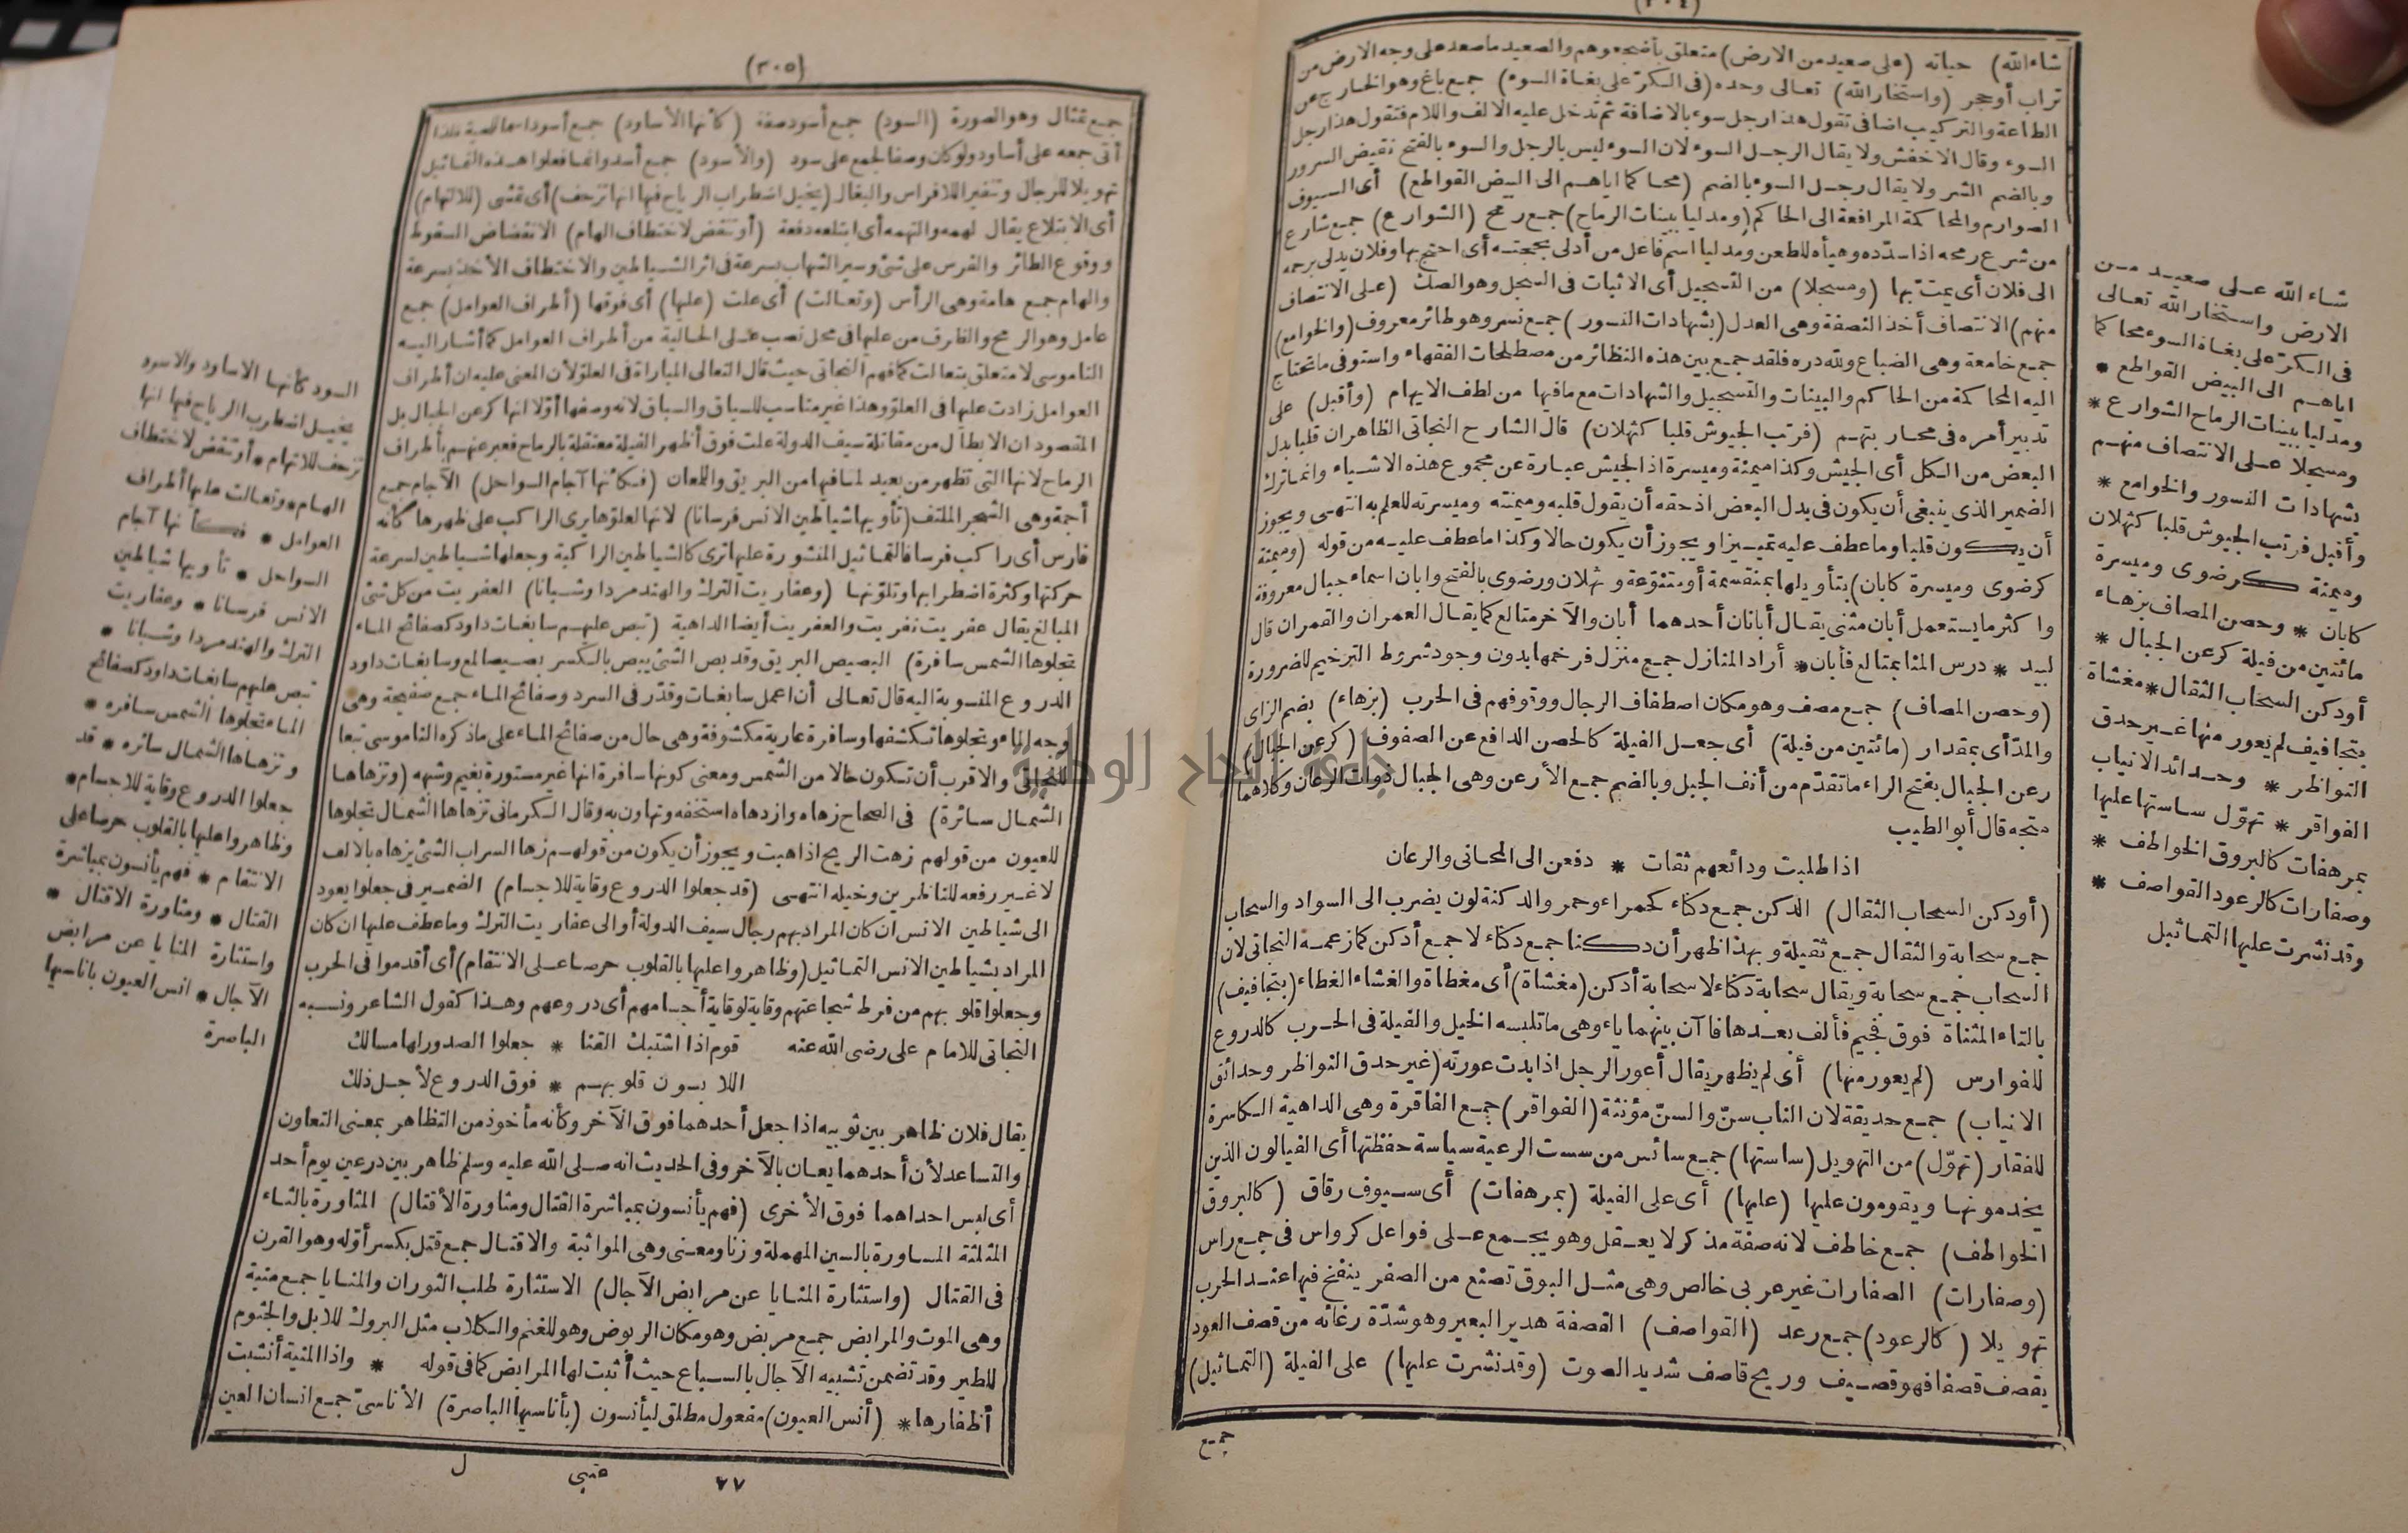 (٣٠٤)
شاء الله) حياته (على صعيد من الارض) متعلق بأضجعوهم والصعيد ما صعد على وجه الارض من
تراب أو حجر (واستخار الله) تعالى وحده (فى الكرة على بغاة السوء) جمع باغ وهو الخارج عن
الطاعة والتركيب اضافى تقول هذا رجل سوء بالاضافة ثم تدخل عليه الالف واللام فتقول هذا رجل
السوء وقال الاخفش ولا يقال الرجل السوء لان السوء ليس بالرجل والسوء بالفتح نقيض السرور
وبالضم الشر ولا يقال رجل السوء بالضم (محاكما اياهم الى البيض القواطع) أى السيوف
الصوارم والمحاكمة المرافعة الى الحاكم (ومدليا ببينات الرماح) جمع رمح (الشوارع) جمع شارع
من شرع رمحه اذا سدده وهيأه للطعن ومدليا اسم فاعل من أدلى بحجته أى احتج بها وفلان يدلى برحمه
الى فلان أى يمت بها (ومسجلا) من التسجيل أى الاثبات فى السجل وهو الصك (على الانتصاف
منهم) الانتصاف أخذ النصفة وهى العدل (بشهادات النسور) جمع نسر وهو طائر معروف (والخوامع)
جمع خامعة وهى الضباع ولله دره فلقد جمع بين هذه النظائر من مصطلحات الفقهاء واستوفى ما تحتاج
اليه المحاكمة من الحاكم والبينات والتسجيل والشهادات مع ما فيها من لطف الايهام (وأقبل) على
تدبير أمره فى محاربتهم (فرتب الجيوش قلبا كثهلان) قال الشارح النجاتى الظاهر ان قلبا بدل
البعض من الكل أى الجيش وكذا ميمنة وميسرة اذ الجيش عبارة عن مجموع هذه الاشياء وانما ترك
الضمير الذى ينبغى أن يكون فى بدل البعض اذ حقه أن يقول قلبه وميمنته وميسرته للعلم به انتهى ويجوز
أن يكون قلبا وما عطف عليه تمييزا ويجوز أن يكون حالا وكذا ما عطف عليه من قوله (وميمنة
كرضوى وميسرة كابان) بتأويلها بمنقسمة أو متنوعة وثهلان ورضوى بالفتح وابان اسماء جبال معروفة
واكثر ما يستعمل أبان مثنى يقال أبانان أحدهما أبان والآخر متالع كما يقال العمران والقمران قال
لبيد * درس المنا بمتالع فأبان * أراد المنازل جمع منزل فرخمها بدون وجود شروط الترخيم للضرورة
(وحصن المصاف) جمع مصف وهو مكان اصطفاف الرجال ووقوفهم فى الحرب (بزهاء) بضم الزاى
والمد أى بمقدار (مائتين من فيلة) أى جعل الفيلة كالحصن الدافع عن الصفوف (كرعن الجبال)
رعن الجبال بفتح الراء ما تقدم من أنف الجبل وبالضم جمع الأرعن وهى الجبال ذوات الرعان وكلاهما
متجه قال أبو الطيب
اذا طلبت ودائعهم ثقات * دفعن الى المحانى والرعان
(أودكن السحاب الثقال) الدكن جمع دكناء كحمراء وحمر والدكنة لون يضرب الى السواد والسحاب
جمع سحابة والثقال جمع ثقيلة وبهذا ظهر أن دكنا جمع دكناء لا جمع أدكن كما زعمه النجاتى لان
السحاب جمع سحابة ويقال سحابة دكناء لا سحابة أدكن (مغشاة) أى مغطاة والغشاء الغطاء (بتجافيف)
بالتاء المثناة فوق فجيم فألف بعدها فا آن بينهما ياء وهى ما تلبسه الخيل والفيلة فى الحرب كالدروع
للفوارس (لم يعور منها) أى لم يظهر يقال أعور الرجل اذا بدت عورته (غير حدق النواظر وحدائق
الانياب) جمع حديقة لان الناب سنّ والسنّ مؤنثة (الفواقر) جمع الفاقرة وهى الداهية الكاسرة
للفقار (تهوّل) من التهويل (ساستها) جمع سائس من سست الرعية سياسة حفظتها أى الفيالون الذين
يخدمونها ويقومون عليها (عليها) أى على الفيلة (بمرهفات) أى سيوف رقاق (كالبروق
الخواطف) جمع خاطف لانه صفة مذكر لا يعقل وهو يجمع على فواعل كرواس فى جمع راس
(وصفارات) الصفارات غير عربى خالص وهى مثل البوق تصنع من الصفر ينفخ فيها عند الحرب
تهويلا (كالرعود) جمع رعد (القواصف) القصفة هدير البعير وهو شدّة رغائه من قصف العود
يقصف قصفا فهو قصيف وريح قاصف شديد الصوت (وقد نشرت عليها) على الفيلة (التماثيل)
جمع
شاء الله على صعيد من
الارض واستخار الله تعالى
فى الكرة على بغاة السوء محاكما
اياهم الى البيض القواطع *
ومدليا ببينات الرماح الشوارع *
ومسجلا على الانتصاف منهم
بشهادات النسور والخوامع *
وأقبل فرتب الجيوش قلبا كثهلان
وميمنة كرضوى وميسرة
كابان * وحصن المصاف بزهاء
مائتين من فيلة كرعن الجبال *
أودكن السحاب الثقال * مغشاة
بتجافيف لم يعور منها غير حدق
النواظر * وحدائد الانياب
الفواقر * تهوّل ساستها عليها
بمرهفات كالبروق الخواطف *
وصفارات كالرعود القواصف *
وقد نشرت عليها التماثيل
(٣٠٥)
جمع تمثال وهو الصورة (السود) جمع أسود صفة (كأنها الأساود) جمع أسود اسما للحية ولذا
أتى جمعه على أساود ولو كان وصفا لجمع على سود (والأسود) جمع أسد وانما فعلوا هذه التماثيل
تهويلا للرجال وتنفيرا للافراس والبغال (يخيل اضطراب الرياح فيها انها تزحف) أى تمشى (للالتهام)
أى الابتلاع يقال لهمه والتهمه أى ابتلعه دفعة (أو تنقض لاختطاف الهام) الانقضاض السقوط
ووقوع الطائر والفرس على شئ وسير الشهاب بسرعة فى اثر الشياطين والاختطاف الأخذ بسرعة
والهام جمع هامة وهى الرأس (وتعالت) أى علت (عليها) أى فوقها (أطراف العوامل) جمع
عامل وهو الرمح والظرف من عليها فى محل نصب على الحالية من أطراف العوامل كما أشار اليه
الناموسى لا متعلق بتعالت كما فهم النجاتى حيث قال التعالى المباراة فى العلو لأن المعنى عليه ان أطراف
العوامل زادت عليها فى العلو وهذا غير مناسب للسياق والسباق لانه وصفها أولا انها كرعن الجبال بل
المقصود ان الابطال من مقاتلة سيف الدولة علت فوق أظهر الفيلة معتقلة بالرماح فعبر عنهم بأطراف
الرماح لانها التى تظهر من بعيد لما فيها من البريق واللمعان (فكأنها آجام السواحل) الآجام جمع
أجمة وهى الشجر الملتف (تأويها شياطين الانس فرسانا) لانها العلوها يرى الراكب على ظهرها كأنه
فارس أى راكب فرسا فالتماثيل المنشورة عليها ترى كالشياطين الراكبة وجعلها شياطين لسرعة
حركتها وكثرة اضطرابها وتلوّنها (وعفاريت الترك والهند مردا وشبانا) العفريت من كل شئ
المبالغ يقال عفريت نفريت والعفريت أيضا الداهية (تبص عليهم سابغات داود كصفائح الماء
تجلوها الشمس سافرة) البصيص البريق وقد بص الشئ يبص بالكسر بصيصا لمع وسابغات داود
الدروع المنسوبة اليه قال تعالى أن اعمل سابغات وقدّر فى السرد وصفائح الماء جمع صفيحة وهى
وجه الماء وتجلوها تكشفها وسافرة عارية مكشوفة وهى حال من صفائح الماء على ما ذكره الناموسى تبعا
للنجاتى والاقرب أن تكون حالا من الشمس ومعنى كونها سافرة انها غير مستورة بغيم وشبهه (وتزهاها
الشمال سائرة) فى الصحاح زهاه وازدهاه استخفه وتهاون به وقال الكرمانى تزهاها الشمال تجلوها
للعيون من قولهم زهت الريح اذا هبت ويجوز أن يكون من قولهم زها السراب الشئ يزهاه بالالف
لا غير رفعه للناظرين وخيله انتهى (قد جعلوا الدروع وقاية للاجسام) الضمير فى جعلوا يعود
الى شياطين الانس ان كان المراد بهم رجال سيف الدولة أو الى عفاريت الترك وما عطف عليها ان كان
المراد بشياطين الانس التماثيل (وظاهروا عليها بالقلوب حرصا على الانتقام) أى أقدموا فى الحرب
وجعلوا قلوبهم من فرط شجاعتهم وقاية لوقاية أجسامهم أى دروعهم وهذا كقول الشاعر ونسبه
النجاتى للامام على رضى الله عنه قوم اذا اشتبك القنا * جعلوا الصدور لها مسالك
اللابسون قلوبهم * فوق الدروع لأجل ذلك
يقال فلان ظاهر بين ثوبيه اذا جعل أحدهما فوق الآخر وكأنه مأخوذ من التظاهر بمعنى التعاون
والتساعد لأن أحدهما يعان بالآخر وفى الحديث انه صلى الله عليه وسلم ظاهر بين درعين يوم أحد
أى لبس احداهما فوق الأخرى (فهم يأنسون بمباشرة القتال ومثاورة الأقتال) المثاورة بالثاء
المثلثة المساورة بالسين المهملة وزنا ومعنى وهى المواثبة والاقتال جمع قتل بكسر أوّله وهو القرن
فى القتال (واستثارة المنايا عن مرابض الآجال) الاستثارة طلب الثوران والمنايا جمع منية
وهى الموت والمرابض جمع مربض وهو مكان الربوض وهو للغنم والكلاب مثل البروك للابل والجثوم
للطير وقد تضمن تشبيه الآجال بالسباع حيث أثبت لها المرابض كما فى قوله * واذا المنية أنشبت
أظفارها * (أنس العيون) مفعول مطلق ليأنسون (بأناسيها الباصرة) الأناسىّ جمع انسان العين
٢٧ منبى ل
السود كأنها الاساود والاسود
يخيل اضطرب الرياح فيها انها
تزحف للالتهام * أو تنقض لاختطاف
الهام * وتعالت عليها أطراف
العوامل * فكأنها آجام
السواحل * تأويها شياطين
الانس فرسانا * وعفاريت
الترك والهند مردا وشبانا *
تبص عليهم سابغات داود كصفائح
الماء تجلوها الشمس سافره *
وتزهاها الشمال سائره * قد
جعلوا الدروع وقاية للاجسام *
وظاهروا عليها بالقلوب حرصا على
الانتقام * فهم يأنسون بمباشرة
القتال * ومثاورة الاقتال *
واستثارة المنايا عن مرابض
الآجال * انس العيون باناسيها
الباصرة
جامعة النجاح الوطنية